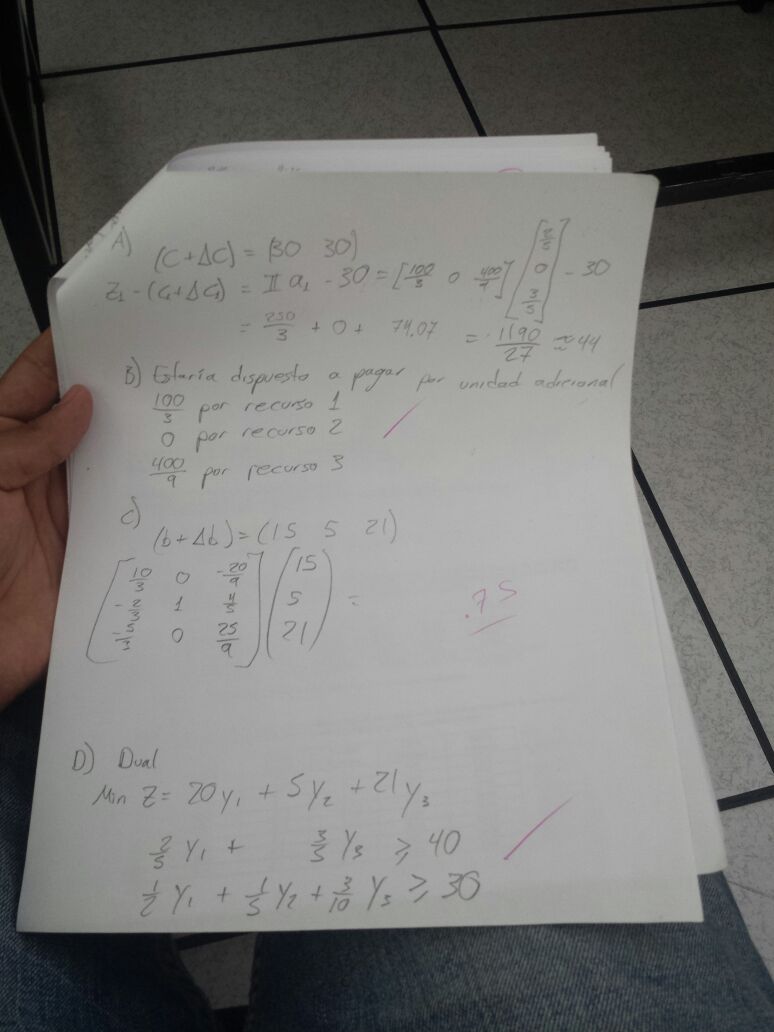 A)
(C+ΔC) = (30 30)
Z₁ - (C₁+ΔC₁) = Π a₁ - 30 = [100/3 0 400/9] [2/5 0 3/5] - 30
= 250/3 + 0 + 74.07 = 1190/27 ≈ 44
B) Estaría dispuesto a pagar por unidad adicional
100/3 por recurso 1
0 por recurso 2
400/9 por recurso 3
C)
(b+Δb) = (15 5 21)
[10/3 0 -20/9] (15
-2/3 1 4/9 5 =
0 25/9] 21)
.75
D) Dual
Min Z = 20y₁ + 5y₂ + 21y₃
2/5 y₁ + 3/5 y₃ ≥ 40
1/2 y₁ + 1/5 y₂ + 3/10 y₃ ≥ 30